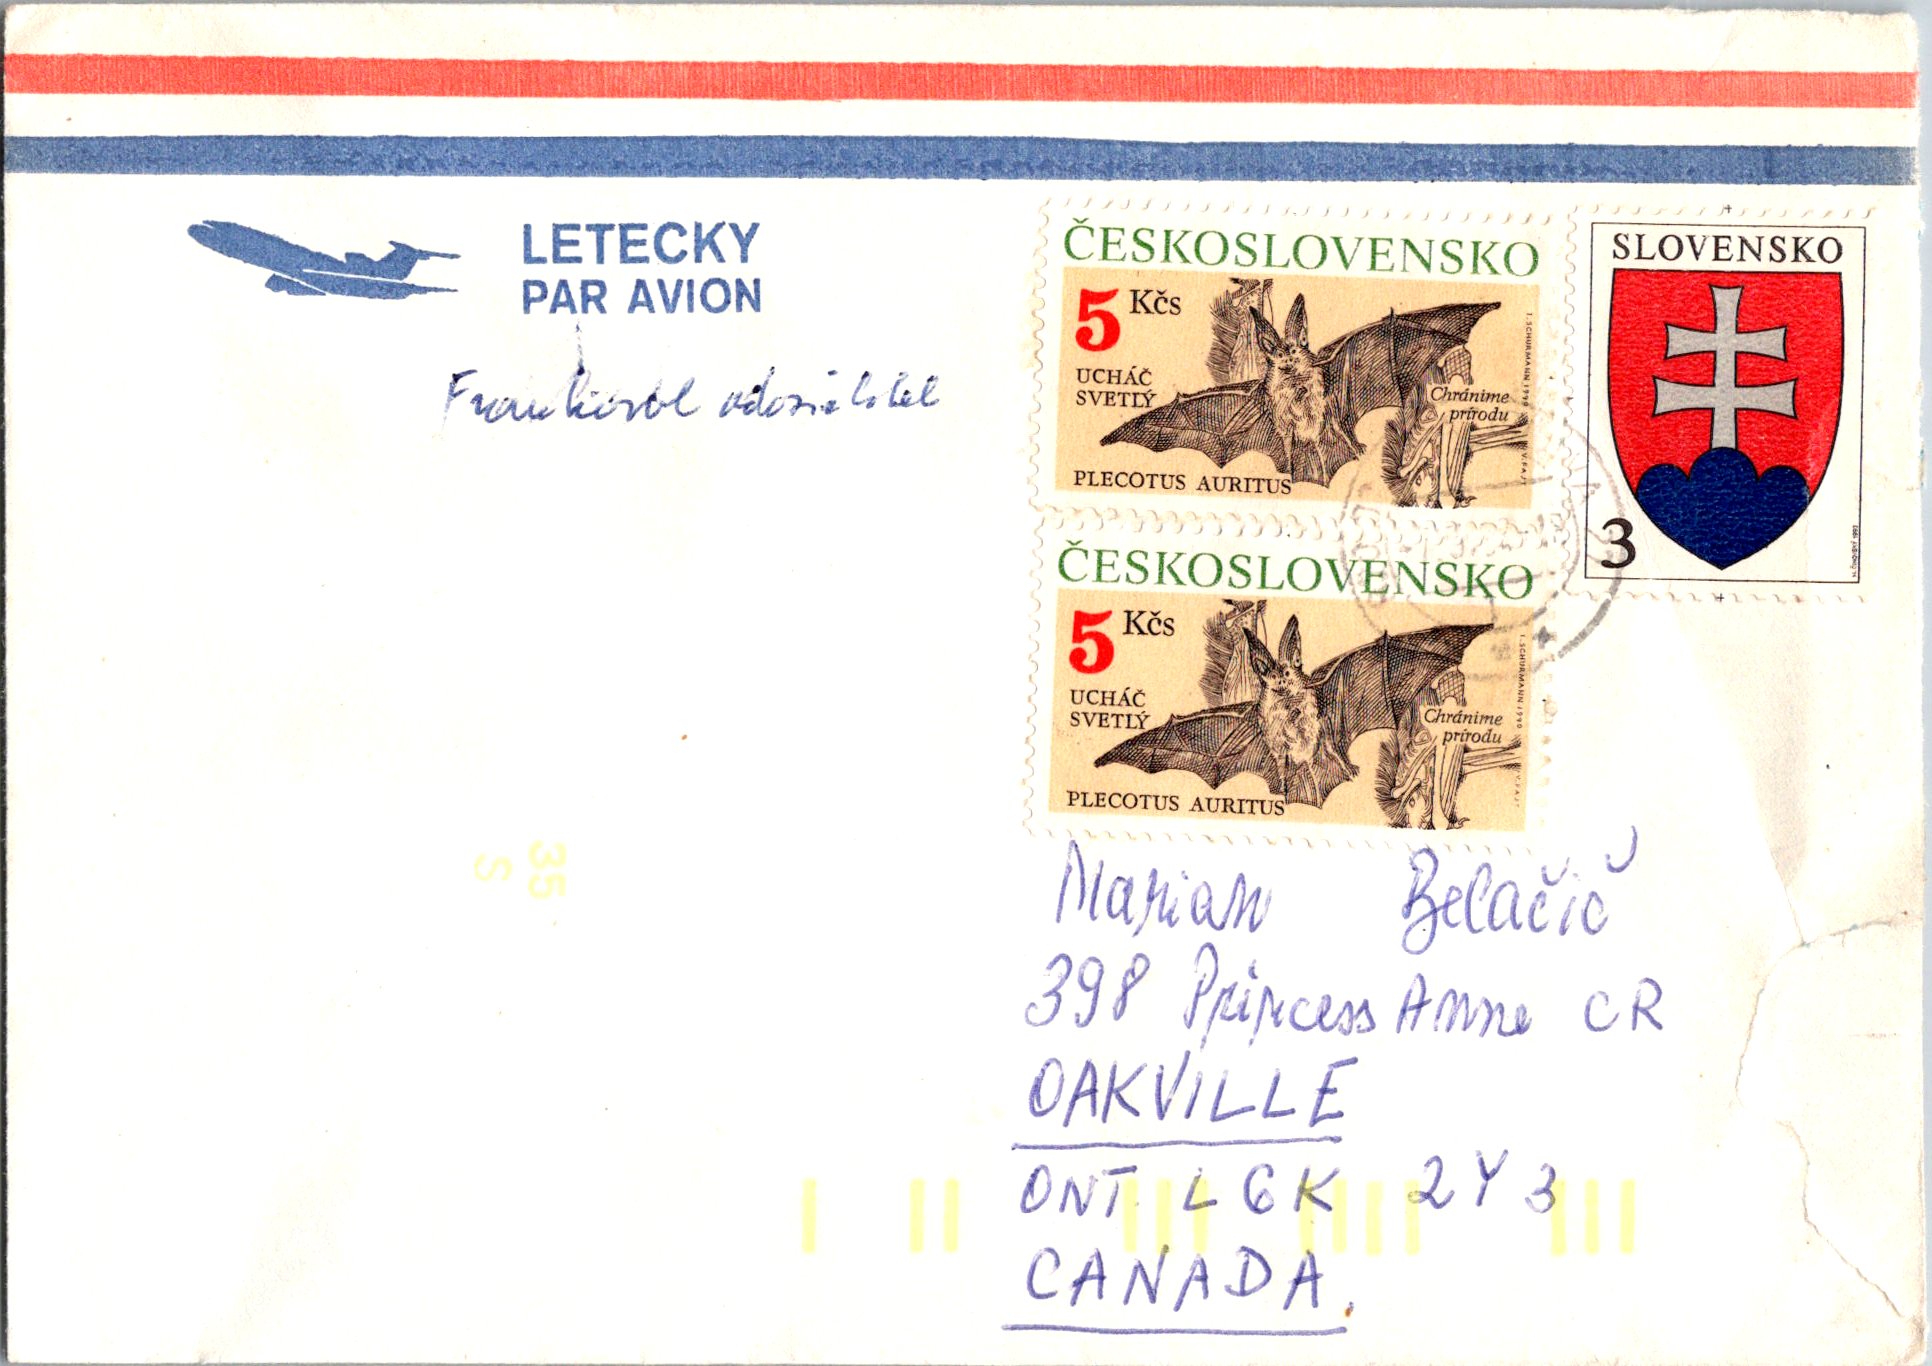 LETECKY
PAR AVION
Frankoval odosielatel
ČESKOSLOVENSKO
5 Kčs
UCHÁČ
SVETLÝ
Chránime
prírodu
PLECOTUS AURITUS
I. SCHURMANN 1990
V. FAJT
SLOVENSKO
3
ČESKOSLOVENSKO
5 Kčs
UCHÁČ
SVETLÝ
Chránime
prírodu
PLECOTUS AURITUS
I. SCHURMANN 1990
V. FAJT
35
S
Marian Belačič
398 Princess Anne CR
OAKVILLE
ONT L6K 2Y3
CANADA.